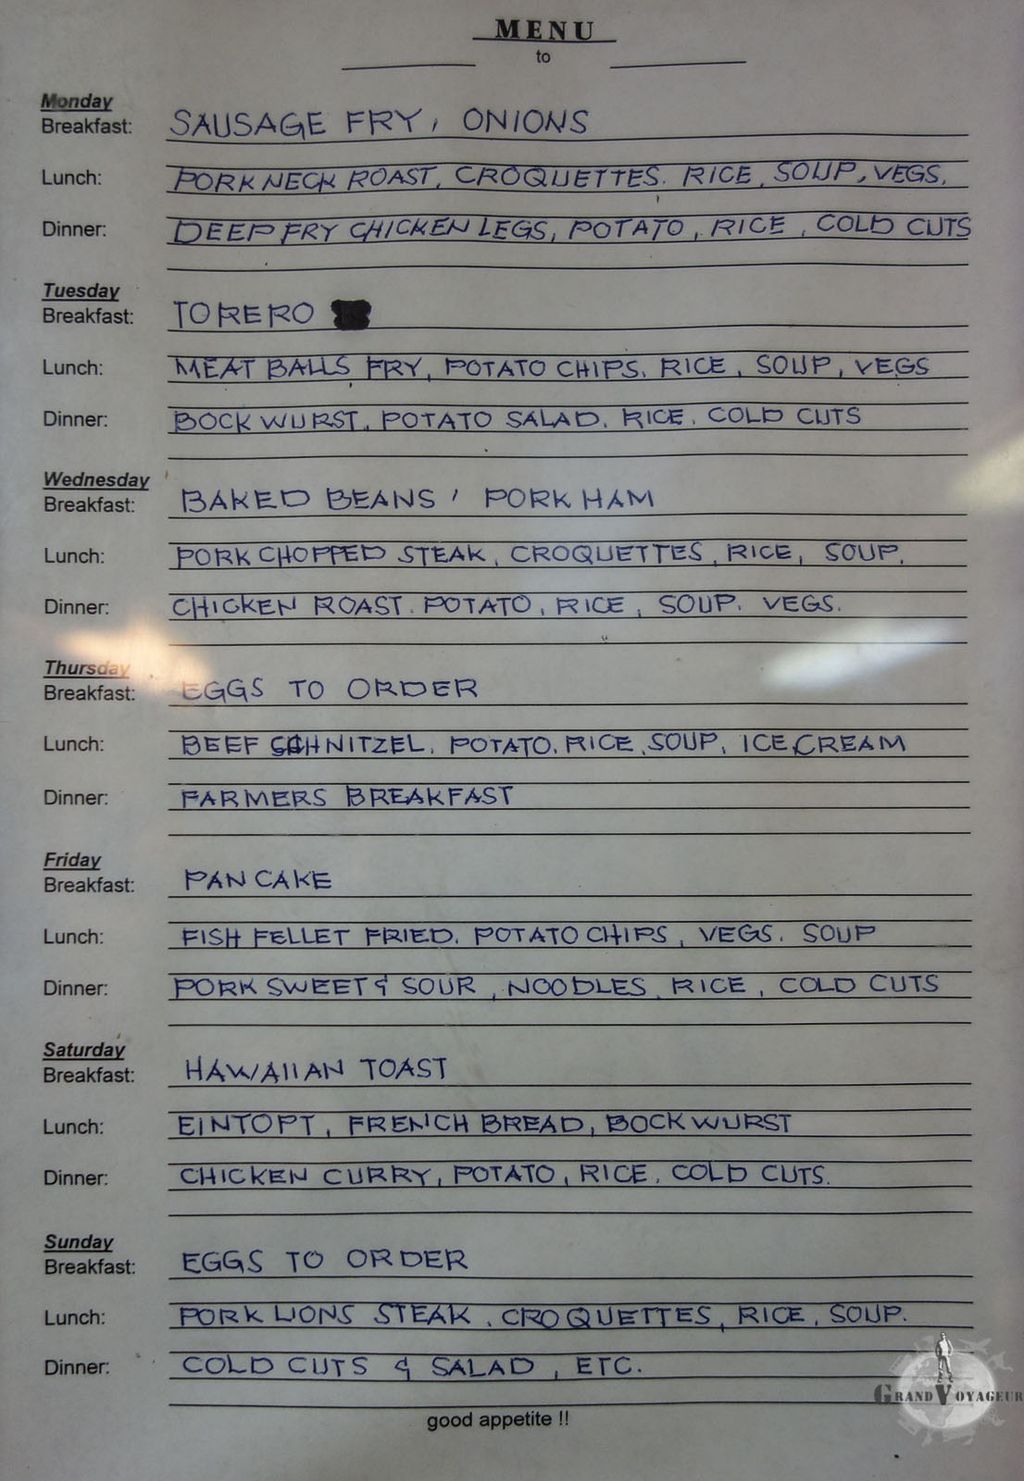 MENU
to
Monday
Breakfast: SAUSAGE FRY, ONIONS
Lunch: PORK NECK ROAST, CROQUETTES. RICE, SOUP, VEGS.
Dinner: DEEP FRY CHICKEN LEGS, POTATO, RICE, COLD CUTS
Tuesday
Breakfast: TORERO
Lunch: MEAT BALLS FRY, POTATO CHIPS. RICE, SOUP, VEGS
Dinner: BOCK WURST, POTATO SALAD. RICE. COLD CUTS
Wednesday
Breakfast: BAKED BEANS ' PORK HAM
Lunch: PORK CHOPPED STEAK, CROQUETTES, RICE, SOUP.
Dinner: CHICKEN ROAST. POTATO, RICE, SOUP. VEGS.
Thursday
Breakfast: EGGS TO ORDER
Lunch: BEEF SCHNITZEL. POTATO. RICE, SOUP, ICE CREAM
Dinner: FARMERS BREAKFAST
Friday
Breakfast: PAN CAKE
Lunch: FISH FELLET FRIED. POTATO CHIPS, VEGS. SOUP
Dinner: PORK SWEET & SOUR, NOODLES, RICE, COLD CUTS
Saturday
Breakfast: HAWAIIAN TOAST
Lunch: EINTOPT, FRENCH BREAD, BOCK WURST
Dinner: CHICKEN CURRY, POTATO, RICE. COLD CUTS.
Sunday
Breakfast: EGGS TO ORDER
Lunch: PORK LIONS STEAK. CROQUETTES, RICE, SOUP.
Dinner: COLD CUTS & SALAD, ETC.
good appetite !!
GRAND VOYAGEUR